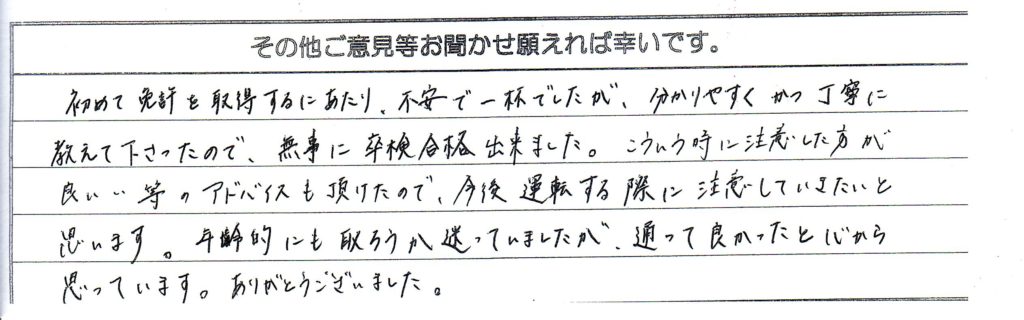 その他ご意見等お聞かせ願えれば幸いです。
初めて免許を取得するにあたり、不安で一杯でしたが、分かりやすくかつ丁寧に
教えて下さったので、無事に卒検合格出来ました。こういう時に注意した方が
良い‥等のアドバイスも頂けたので、今後運転する際に注意していきたいと
思います。年齢的にも取ろうか迷っていましたが、通って良かったと心から
思っています。ありがとうございました。